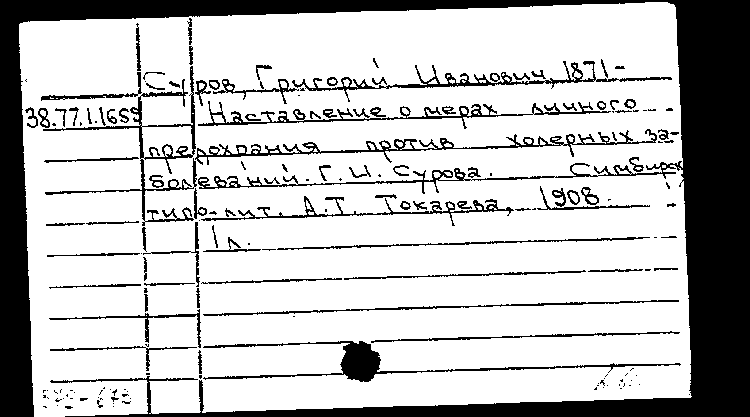 Суров, Григорий Иванович, 1871-
38.77.1.1659 Наставление о мерах личного
предохрания против холерных за-
болеваний. Г. И. Сурова. Симбирск,
типо-лит. А.Т. Токарева, 1908.
1 л.